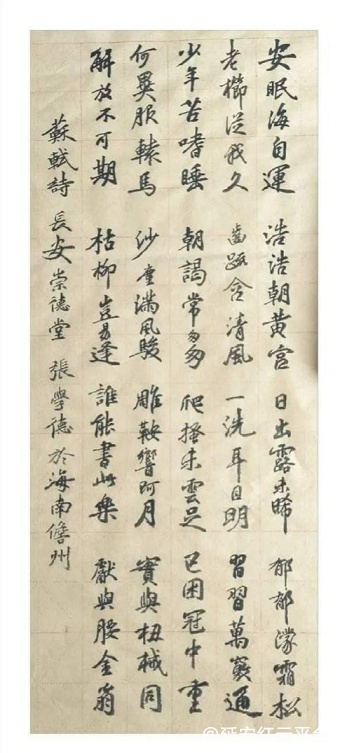 安眠海自運浩浩朝黄宫日出露未晞郁郁濛霜松
老櫛從我久齒疏含清風一洗耳目明習習萬竅通
少年苦嗜睡朝謁常匆匆爬搔未雲足已困冠中重
何異服轅馬沙塵滿風駿雕鞍響珂月實與杻械同
解放不可期枯柳豈易逢誰能書此樂獻與腰金翁
蘇軾詩長安崇德堂張學德於海南儋州
@延安红云平